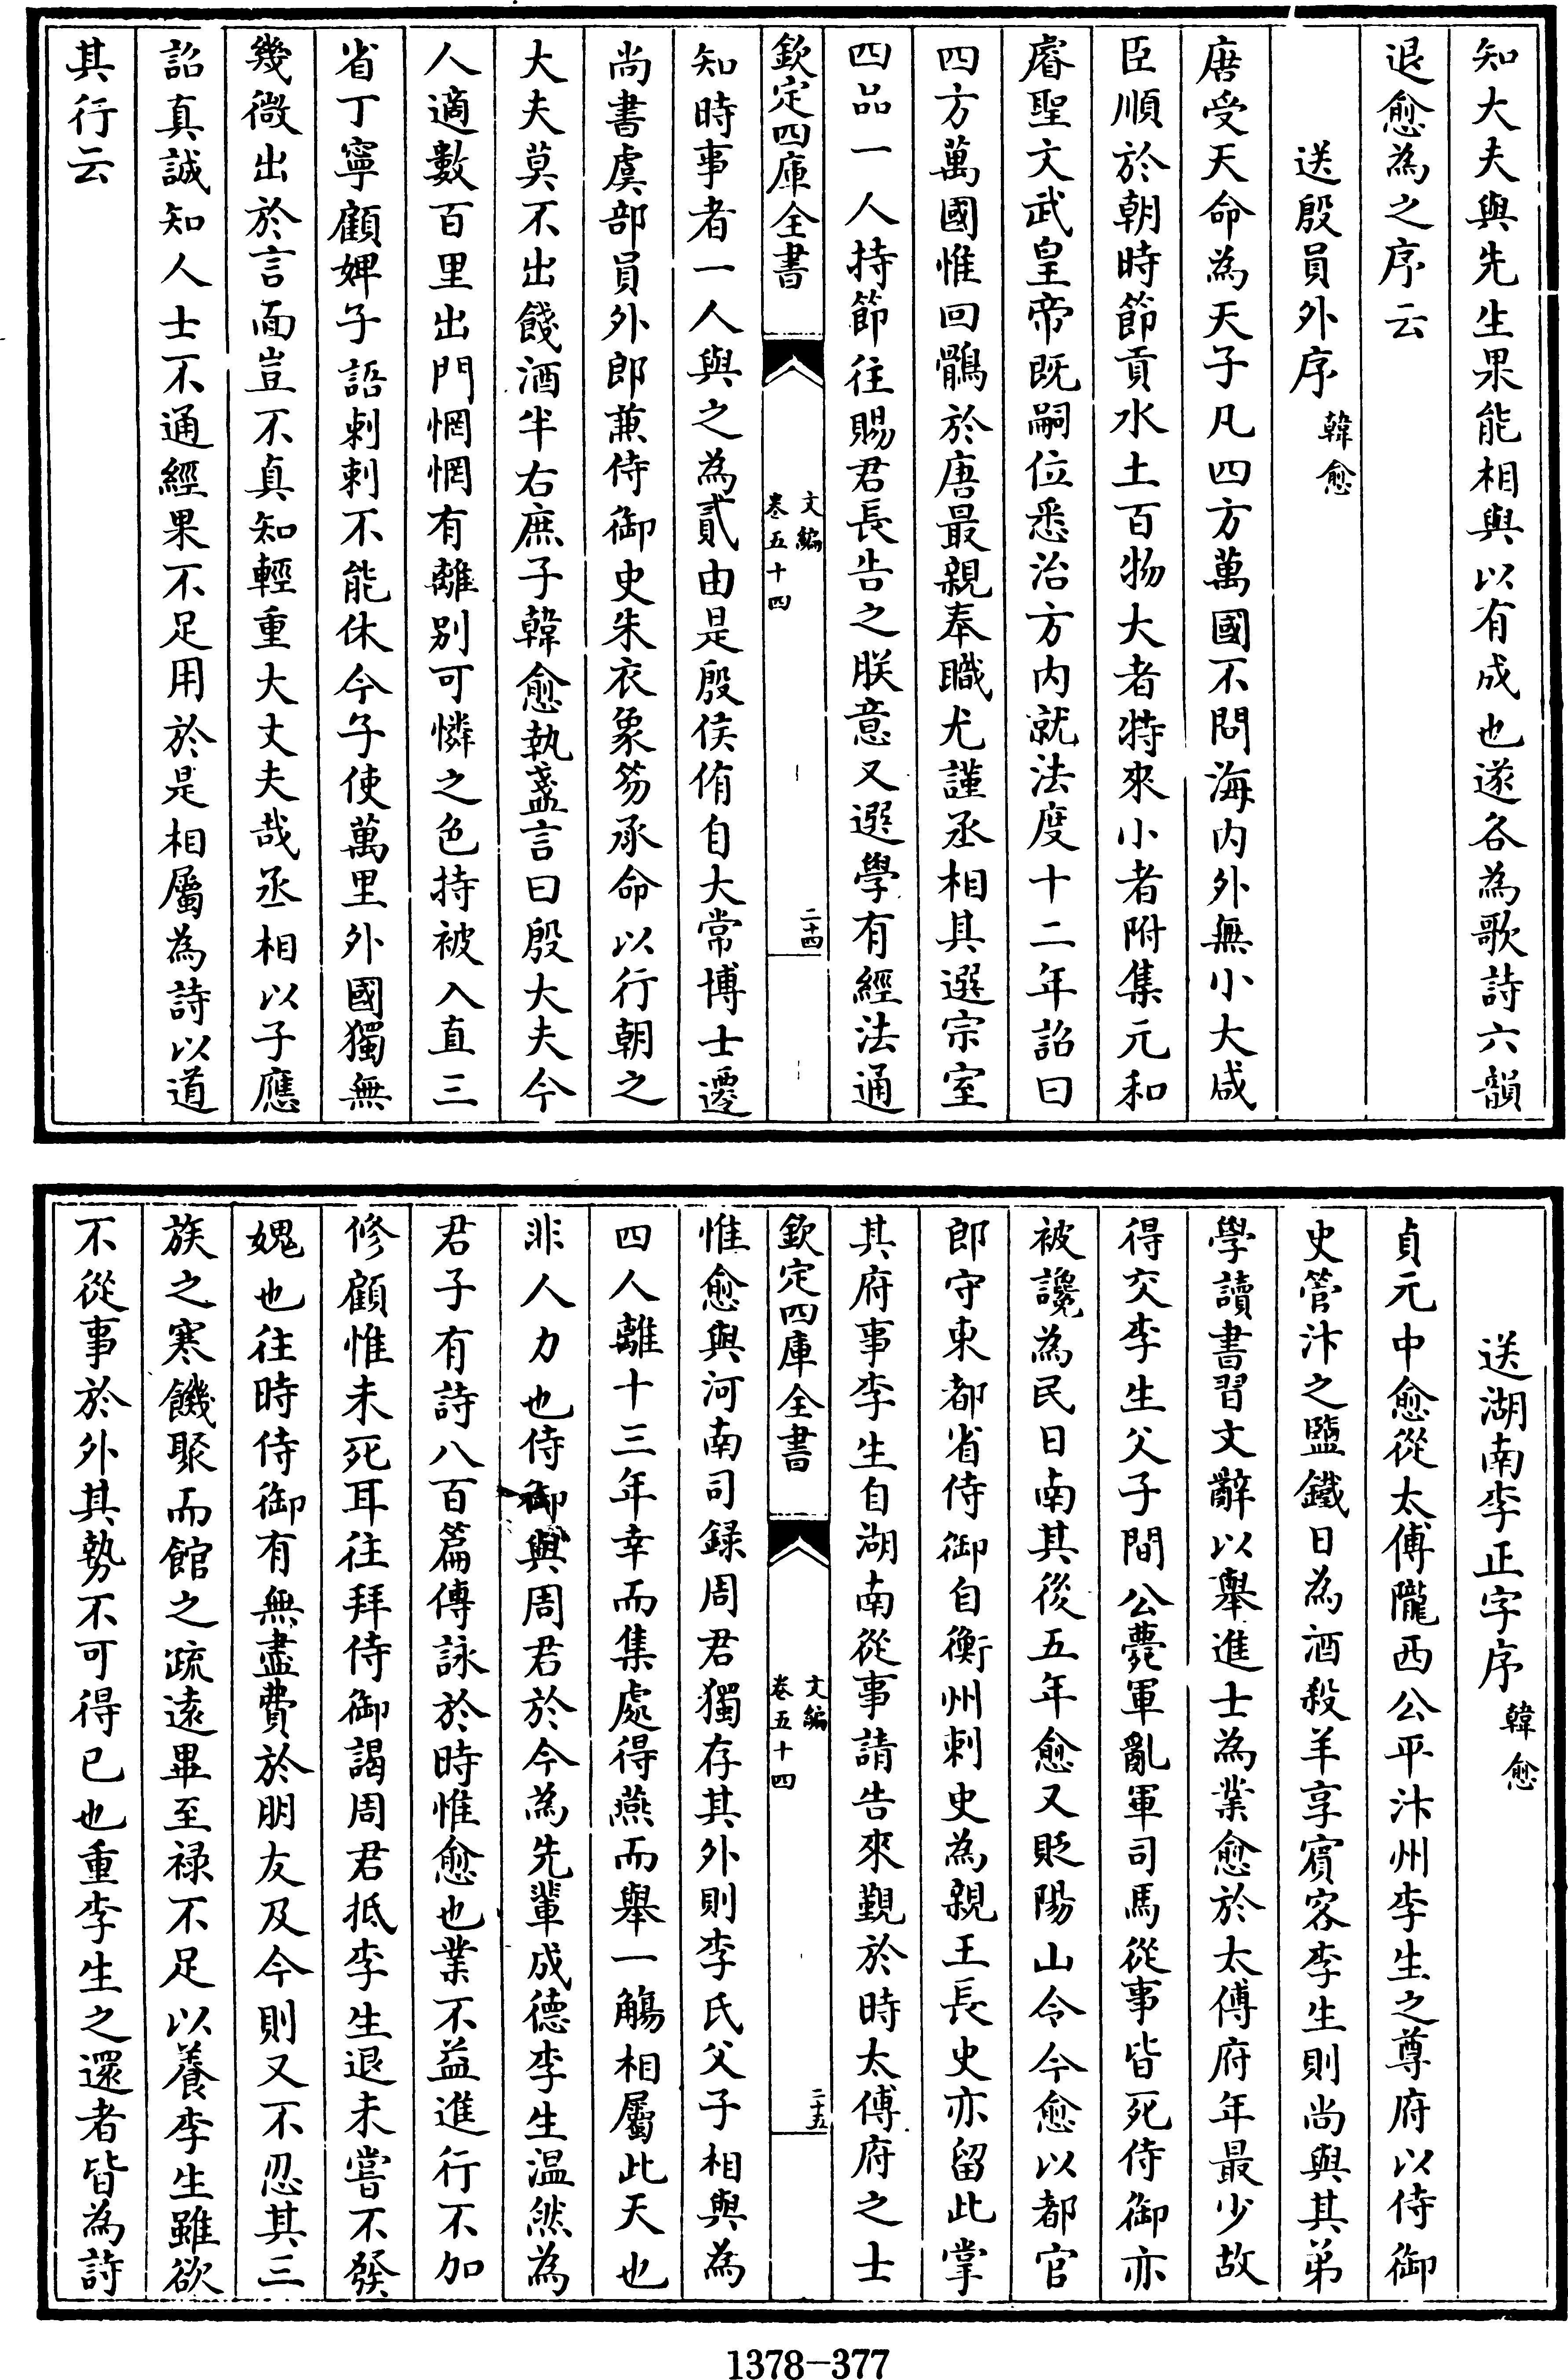 知大夫與先生果能相與以有成也遂各為歌詩六韻
退愈為之序云
送殷員外序 韓愈
唐受天命為天子凡四方萬國不問海內外無小大咸
臣順於朝時節貢水土百物大者特來小者附集元和
睿聖文武皇帝既嗣位悉治方內就法度十二年詔曰
四方萬國惟回鶻於唐最親奉職尤謹丞相其選宗室
四品一人持節往賜君長告之朕意又選學有經法通
欽定四庫全書
文編
卷五十四
二十四
知時事者一人與之為貳由是殷侯侑自大常博士遷
尚書虞部員外郎兼侍御史朱衣象笏承命以行朝之
大夫莫不出餞酒半右庶子韓愈執盞言曰殷大夫今
人適數百里出門惘惘有離别可憐之色持被入直三
省丁寧顧婢子語剌剌不能休今子使萬里外國獨無
幾微出於言面豈不真知輕重大丈夫哉丞相以子應
詔真誠知人士不通經果不足用於是相屬為詩以道
其行云
送湖南李正字序 韓愈
貞元中愈從太傅隴西公平汴州李生之尊府以侍御
史管汴之鹽鐵日為酒殺羊享賓客李生則尚與其弟
學讀書習文辭以舉進士為業愈於太傅府年最少故
得交李生父子間公薨軍亂軍司馬從事皆死侍御亦
被讒為民日南其後五年愈又貶陽山令今愈以都官
郎守東都省侍御自衡州刺史為親王長史亦留此掌
其府事李生自湖南從事請告來覲於時太傅府之士
欽定四庫全書
文編
卷五十四
二十五
惟愈與河南司録周君獨存其外則李氏父子相與為
四人離十三年幸而集處得燕而舉一觴相屬此天也
非人力也侍御與周君於今為先輩成德李生温然為
君子有詩八百篇傳詠於時惟愈也業不益進行不加
修顧惟未死耳往拜侍御謁周君抵李生退未嘗不發
媿也往時侍御有無盡費於朋友及今則又不忍其三
族之寒饑聚而館之疏遠畢至禄不足以養李生雖欲
不從事於外其勢不可得已也重李生之還者皆為詩
1378-377